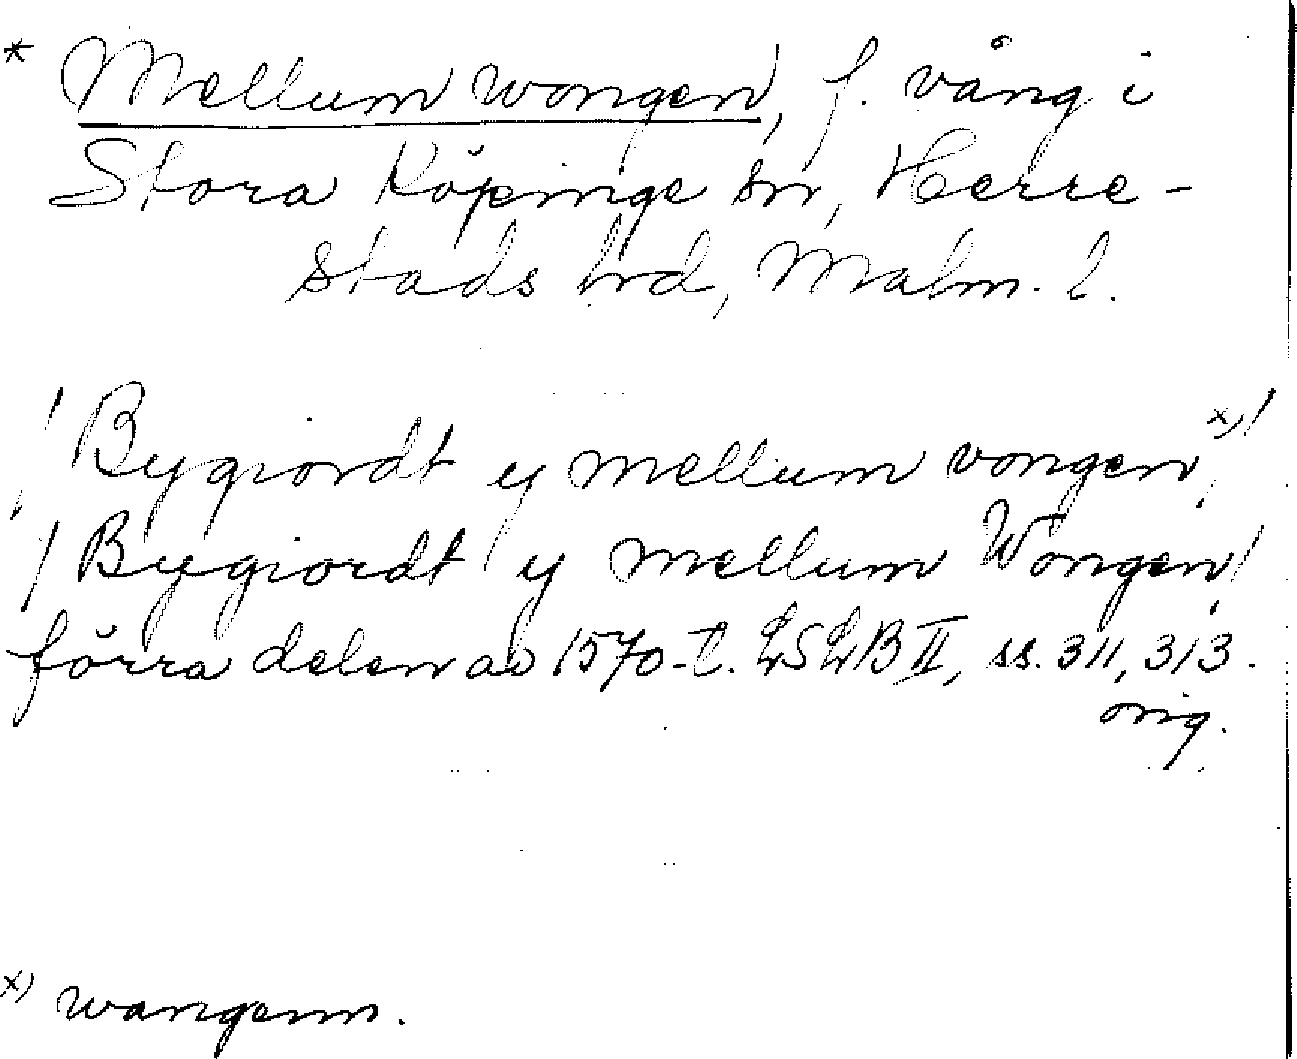 * Mellum wongen, f. vång i
Stora Köpinge sn, Herre-
stads hd, Malm. l.
/Bygiordt y mellum vongen, x)/
/Bygiordt y mellum Wongen/
förra delen av 1570-t. LSLB II, ss. 311, 313.
orig.
x) wangenn.